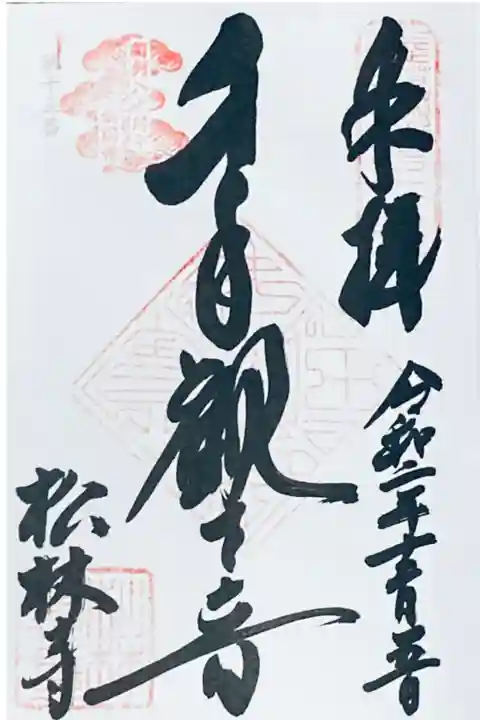 奉拝
令和二年十一月五日
千手観世音
松林寺